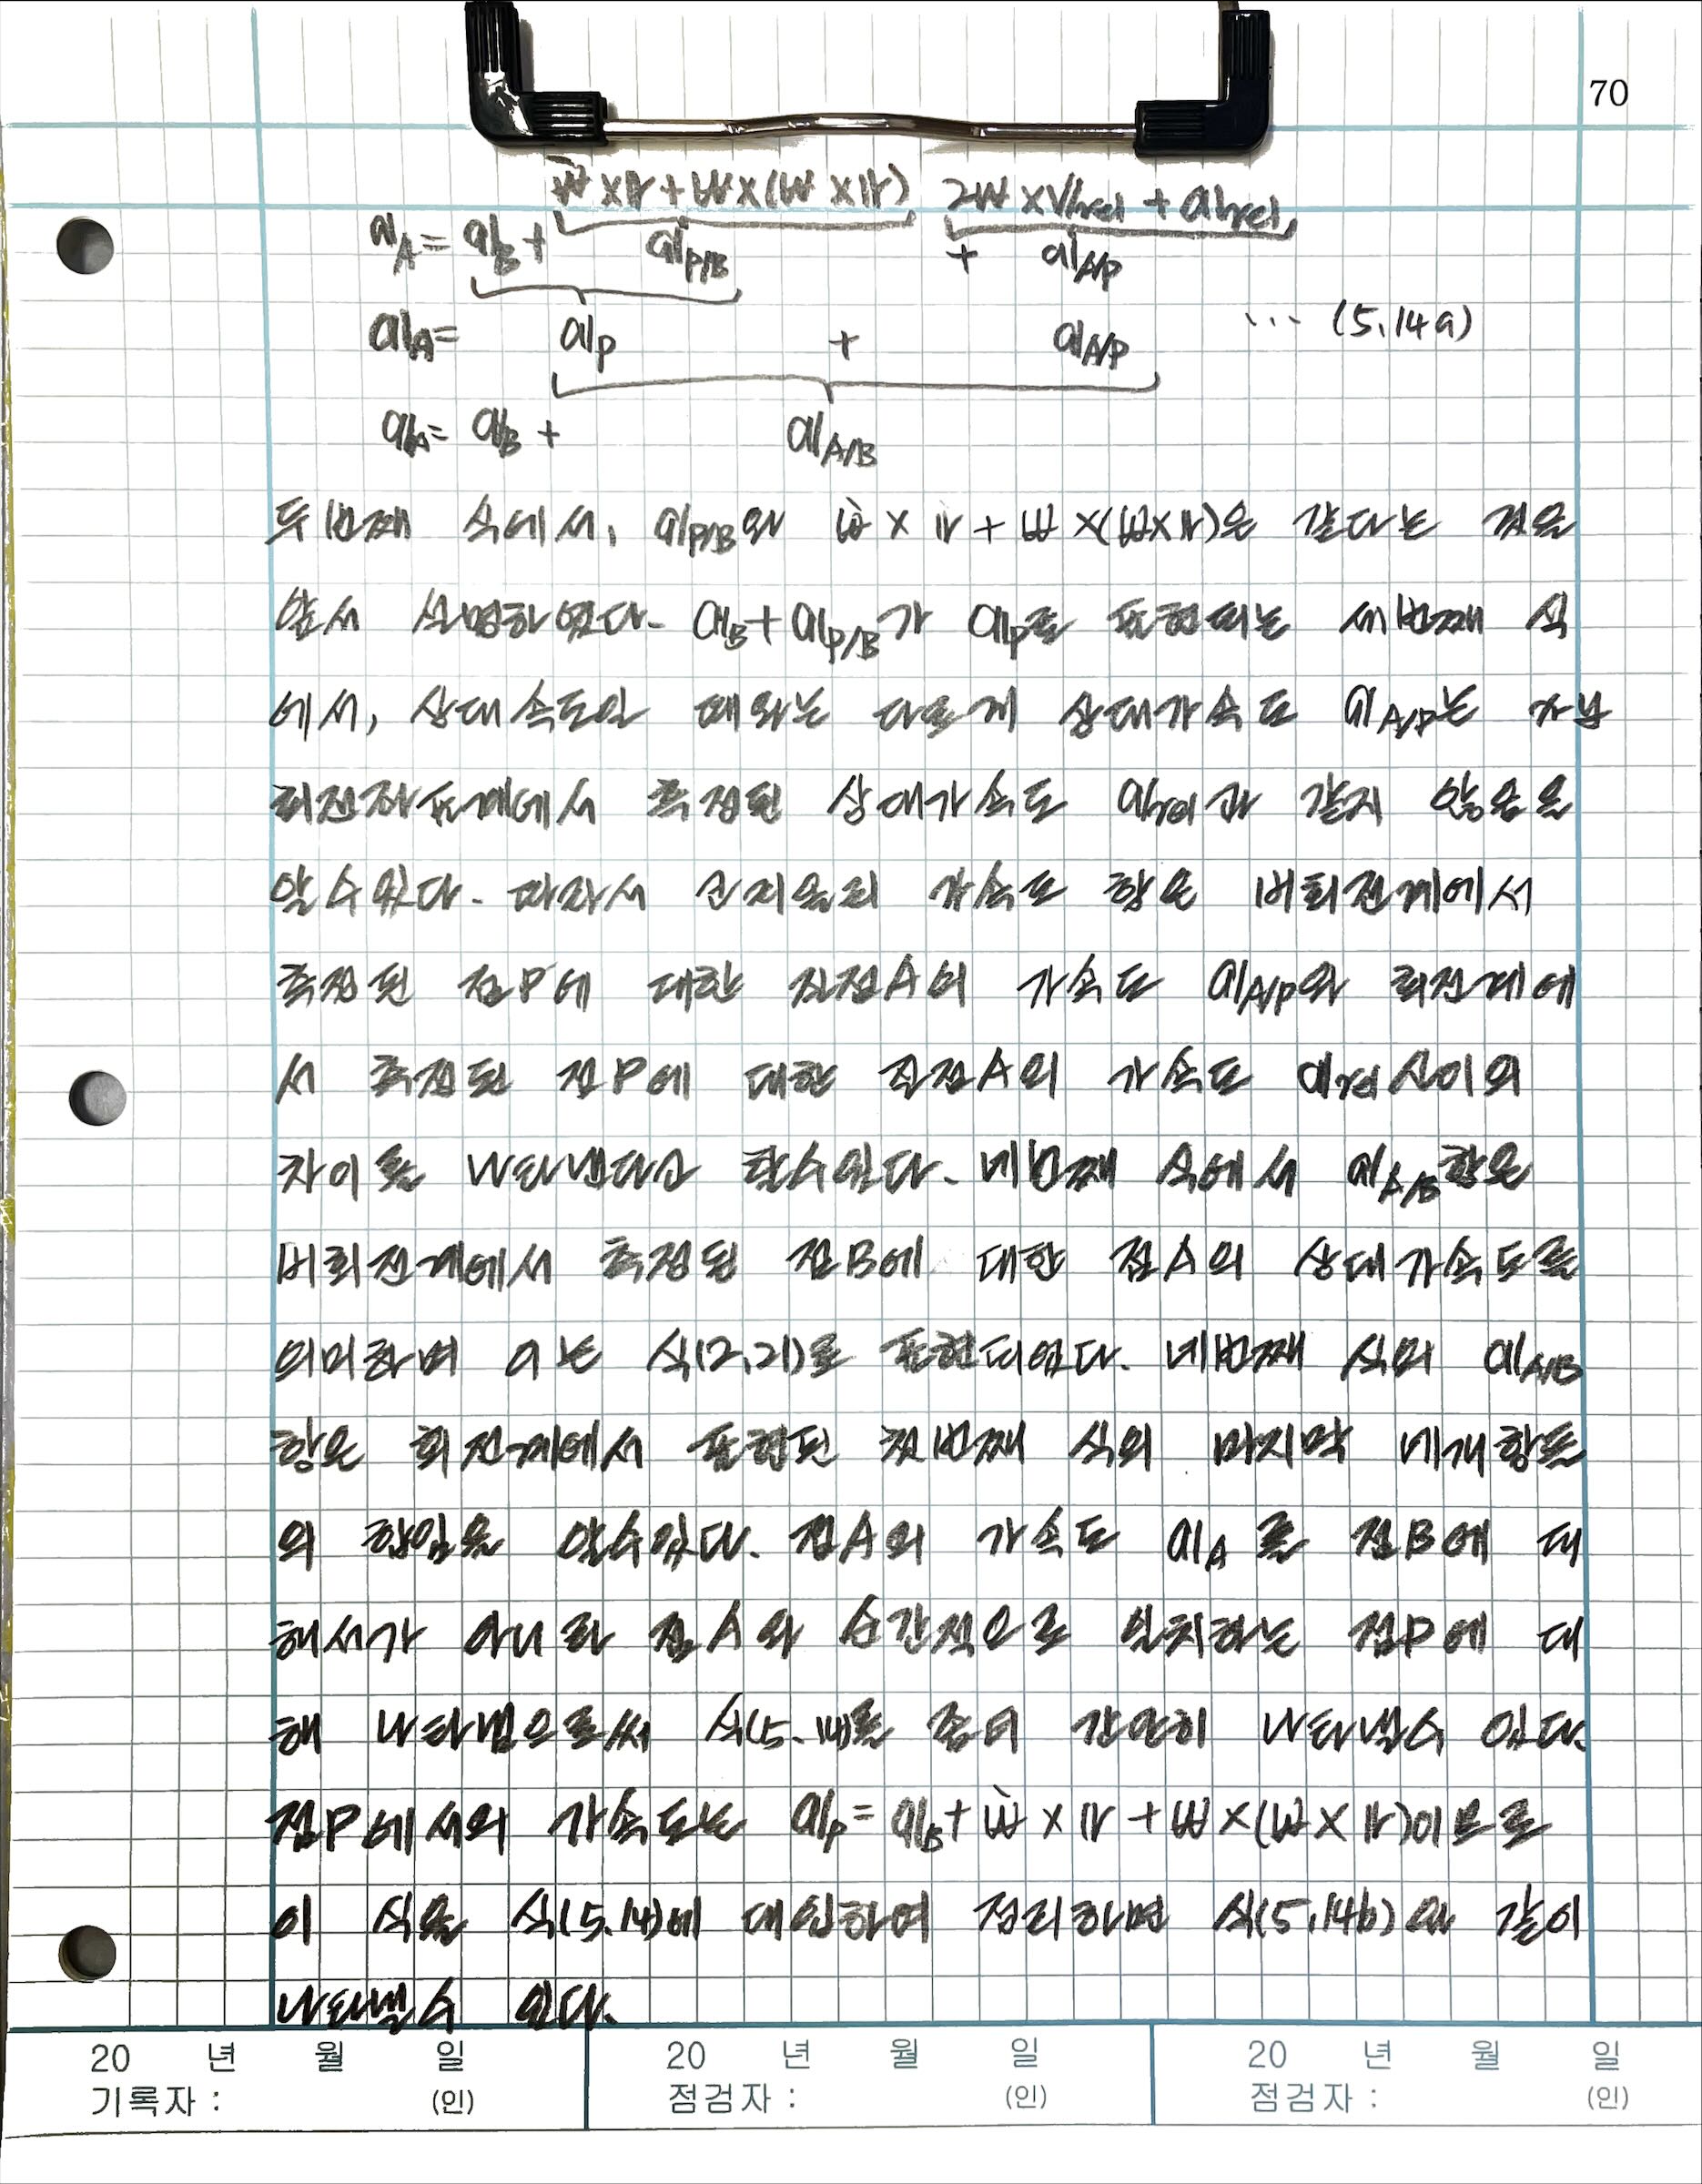 70
ω̇×r+ω×(ω×r) 2ω×Vrel + arel
aA= aB+ aP/B + aA/P
aA= aP + aA/P ... (5.14a)
aA= aB + aA/B
두번째 식에서, aP/B와 ω̇×r+ω×(ω×r)은 같다는 것을
앞서 설명하였다. aB+aP/B가 aP로 표현되는 세번째 식
에서, 상대속도일 때와는 다르게 상대가속도 aA/P는
회전좌표계에서 측정된 상대가속도 arel과 같지 않음을
알수있다. 따라서 코리올리 가속도 항은 비회전계에서
측정된 점P에 대한 질점A의 가속도 aA/P와 회전계에
서 측정된 점P에 대한 질점A의 가속도 arel사이의
차이를 나타낸다고 할수있다. 네번째 식에서 aA/B항은
비회전계에서 측정된 점B에 대한 점A의 상대가속도를
의미하며 이는 식(2.21)로 표현되었다. 네번째 식의 aA/B
항은 회전계에서 표현된 첫번째 식의 마지막 네개항들
의 합임을 알수있다. 점A의 가속도 aA를 점B에 대
해서가 아니라 점A와 순간적으로 일치하는 점P에 대
해 나타냄으로써 식(5.14)를 좀더 간단히 나타낼수 있다.
점P에서의 가속도는 aP=aB+ω̇×r+ω×(ω×r)이므로
이 식을 식(5.14)에 대입하여 정리하면 식(5.14b)와 같이
나타낼수 있다.
20 년 월 일 20 년 월 일 20 년 월 일
기록자 : (인) 점검자 : (인) 점검자 : (인)